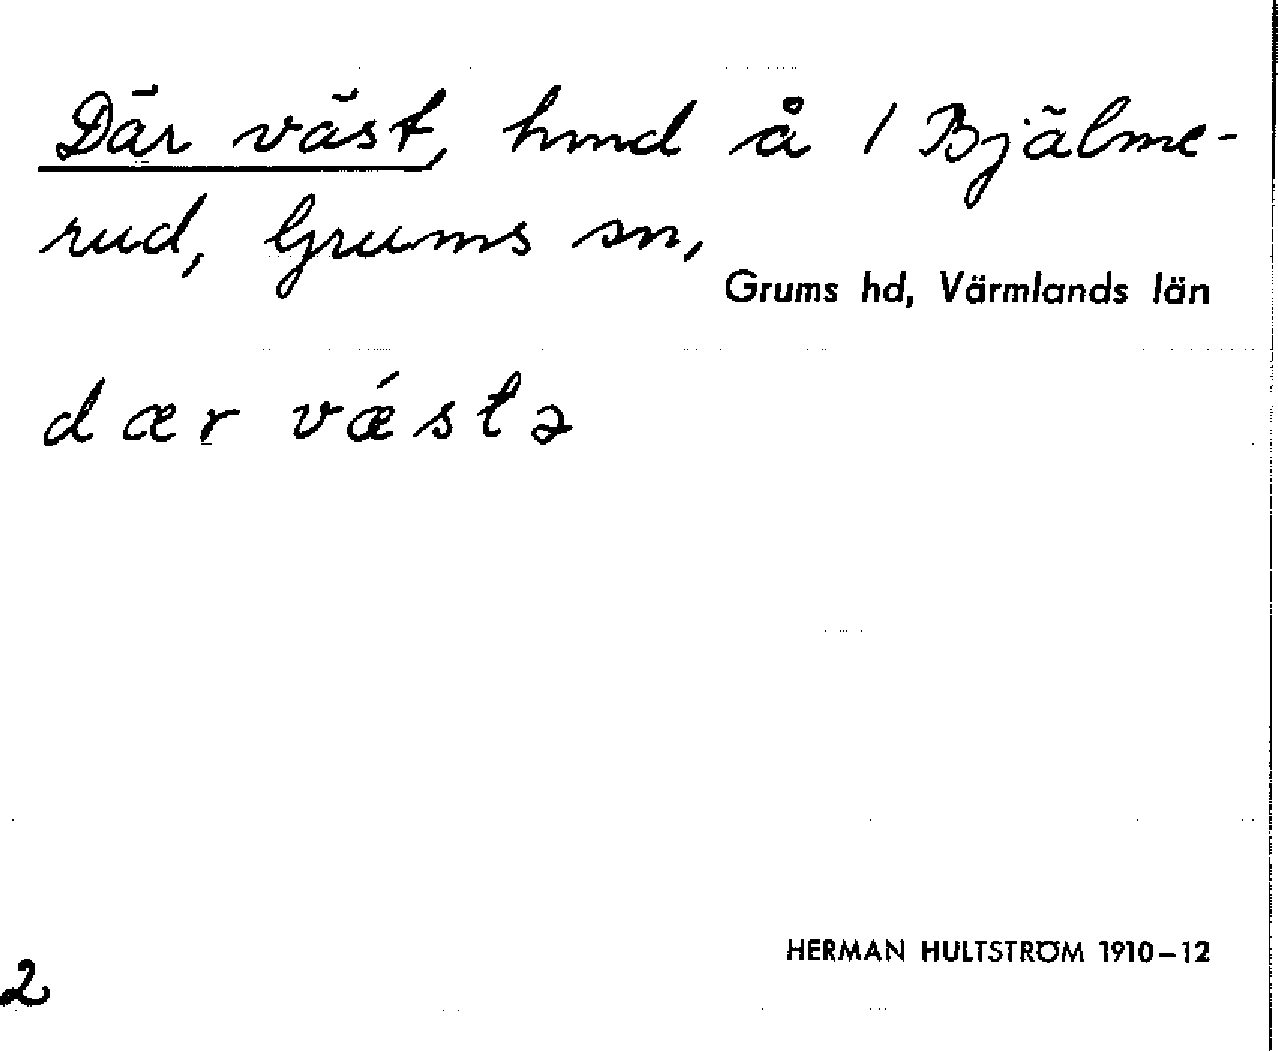 Där väst, hmd å 1 Bjälme-
rud, Grums sn,
Grums hd, Värmlands län
dær vǽstə
HERMAN HULTSTRÖM 1910–12
2